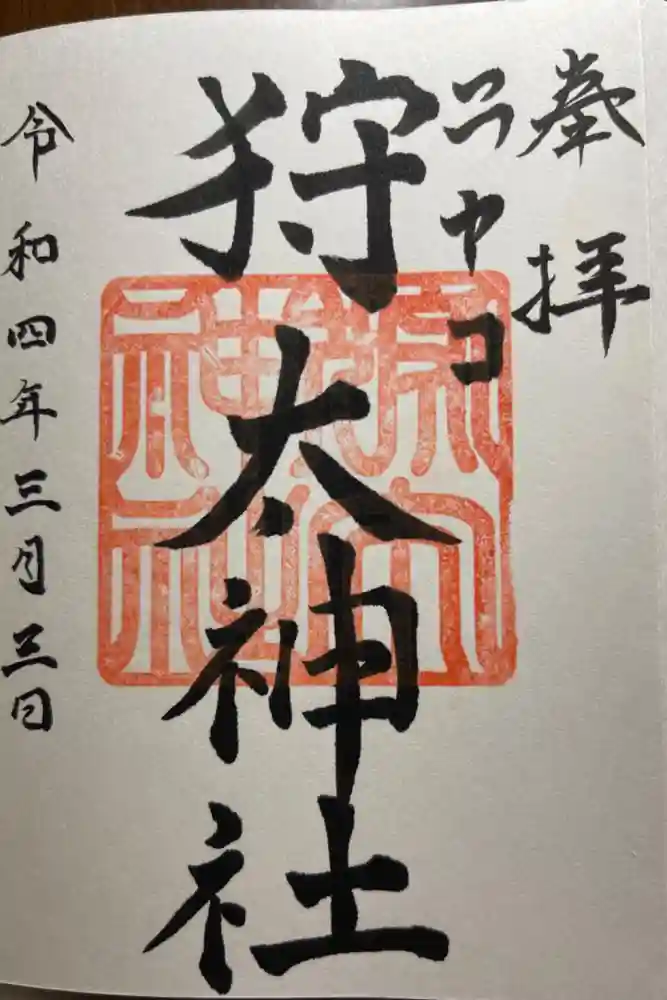 奉拝
ニセコ
狩太神社
令和四年三月三日